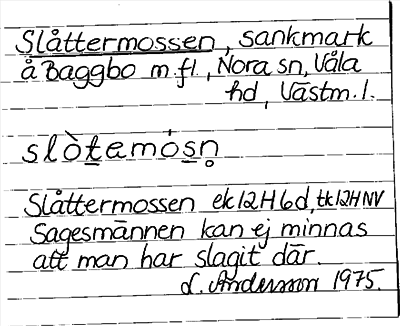 Slåttermossen, sankmark
å Baggbo m.fl., Nora sn, Våla
hd, Västm.l.
slòt̲emós̲n̥
Slåttermossen ek 12H6d, tk 12HNV
Sagesmännen kan ej minnas
att man har slagit där.
L. Andersson 1975.